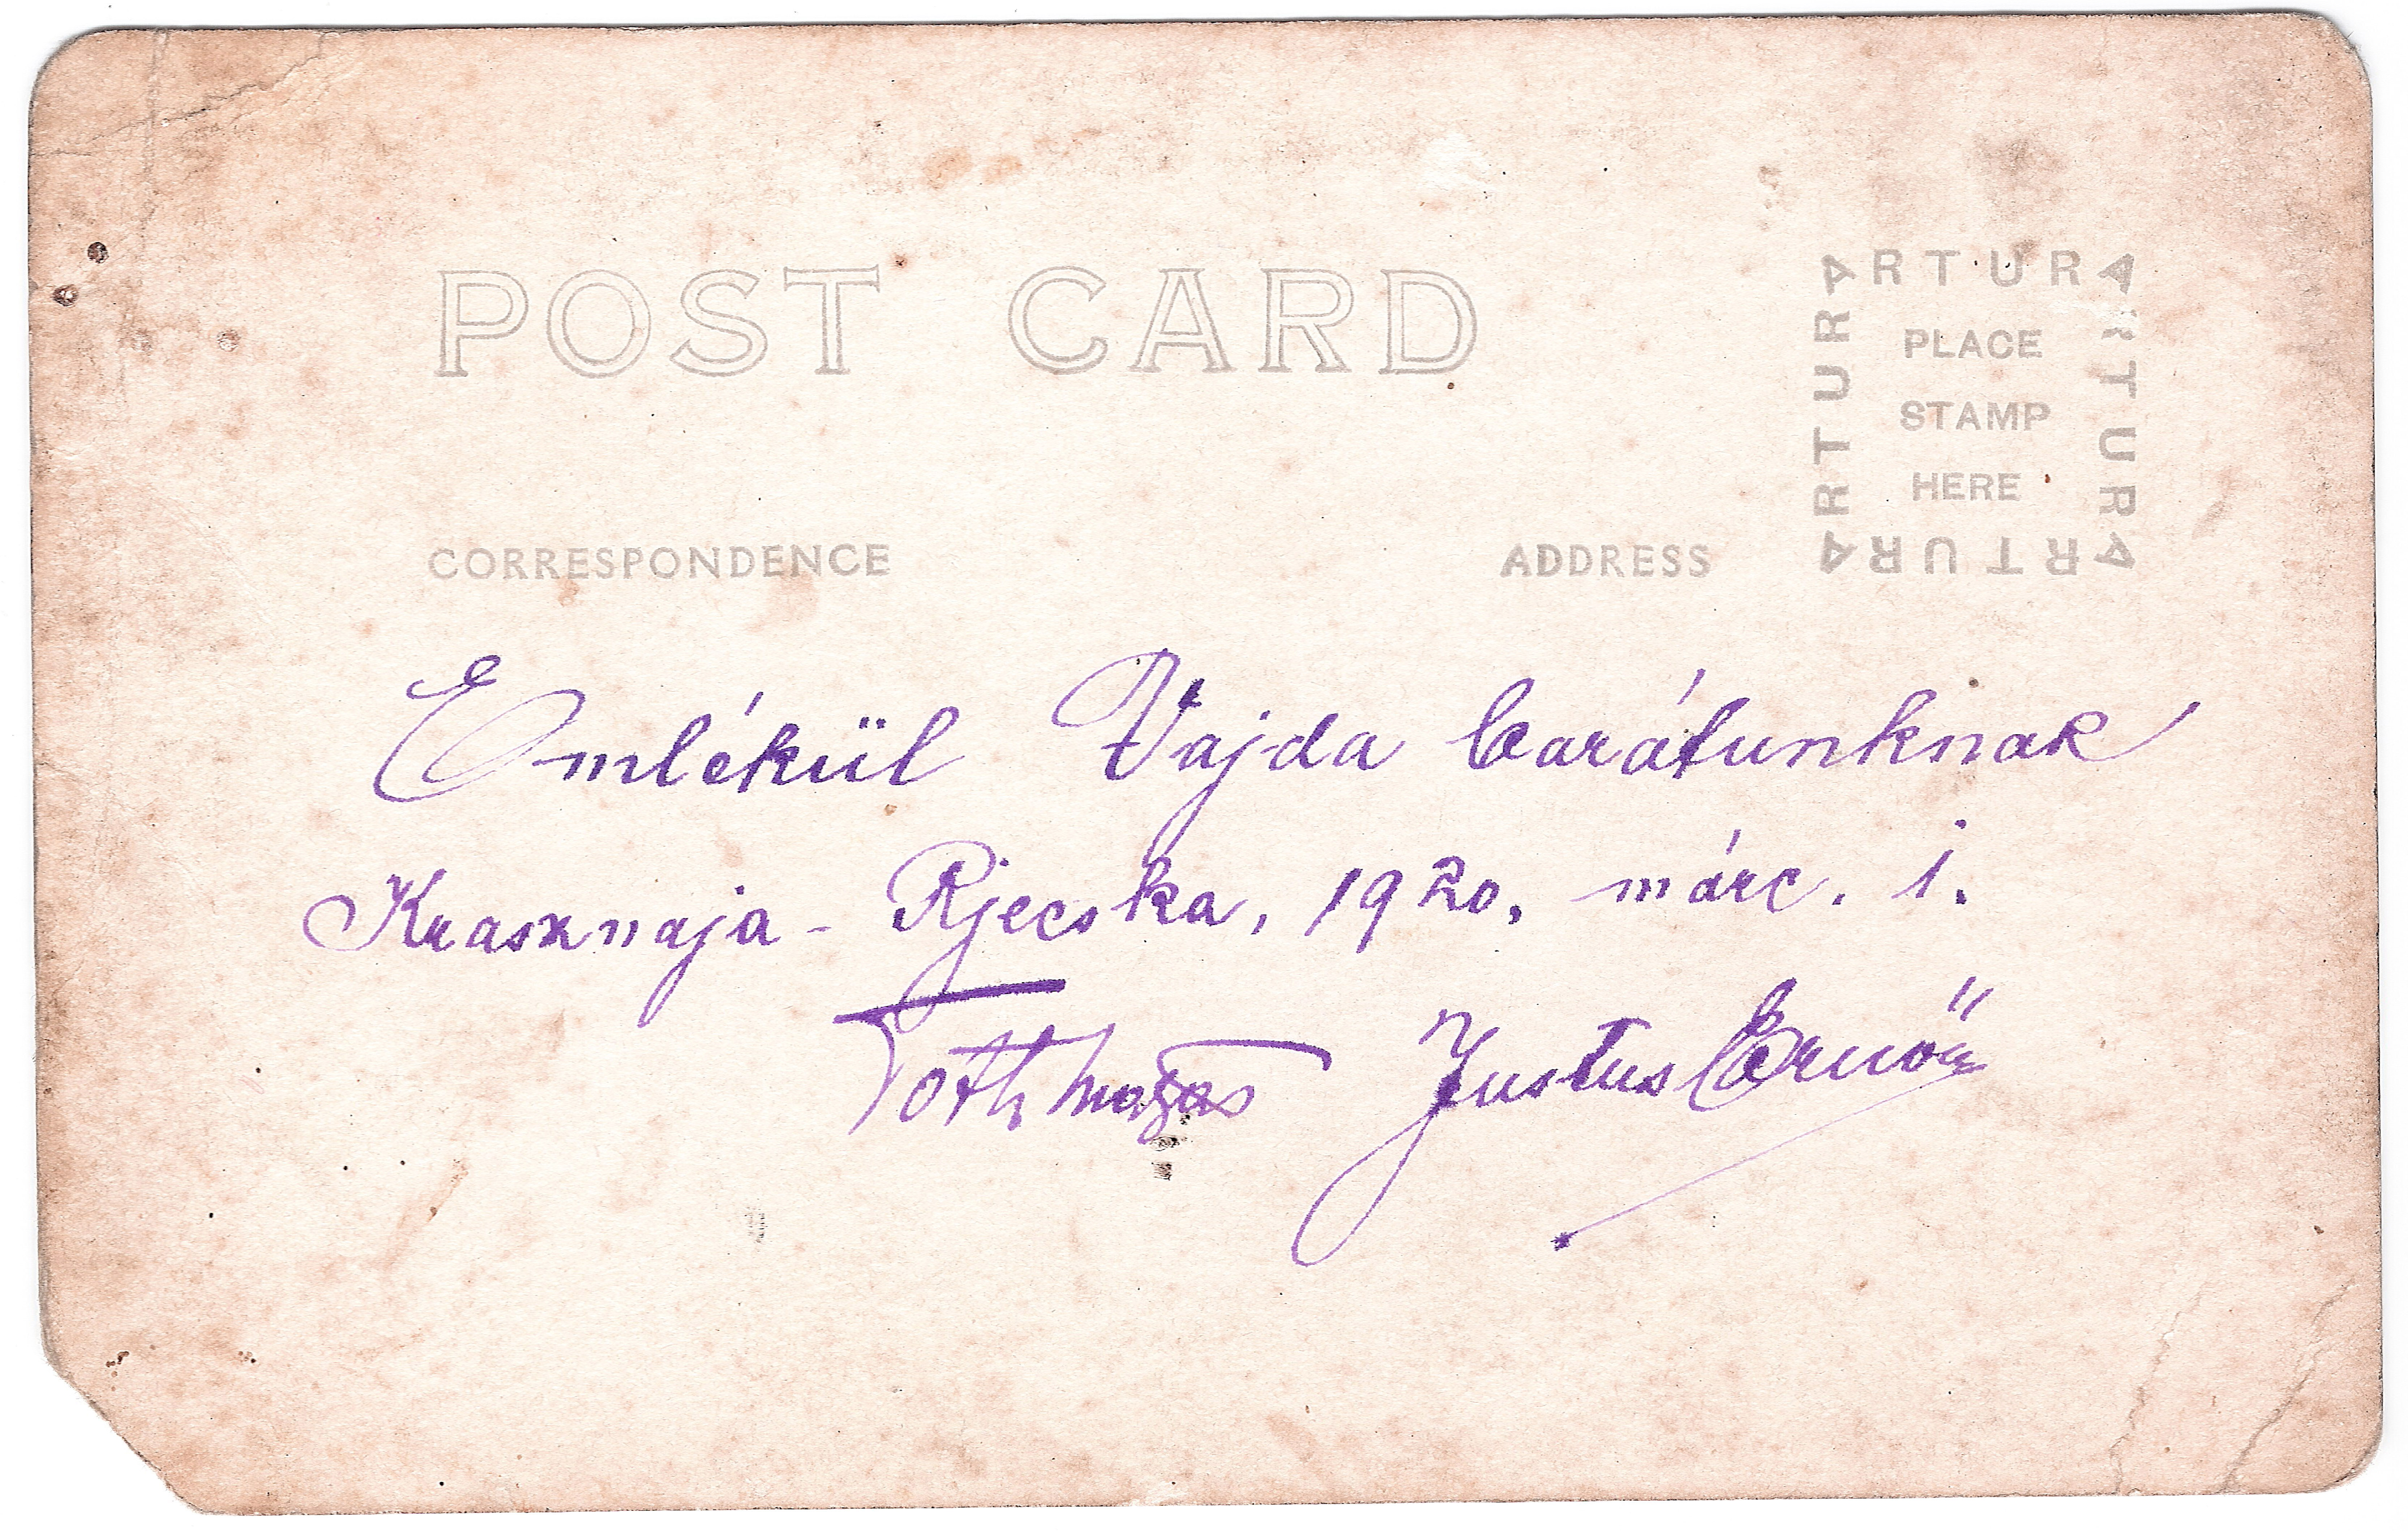 POST CARD
ARTURA
ARTURA
ARTURA
ARTURA
PLACE
STAMP
HERE
CORRESPONDENCE
ADDRESS
Emlékül Vajda barátunknak
Krasznaja - Rjecska, 1920. márc. 1.
Tóth Justus Ernő